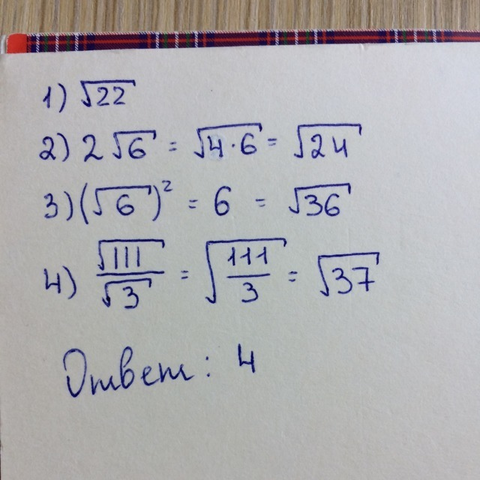 1) √22
2) 2√6 = √4·6 = √24
3) (√6)² = 6 = √36
4) √111/√3 = √111/3 = √37
Ответ: 4